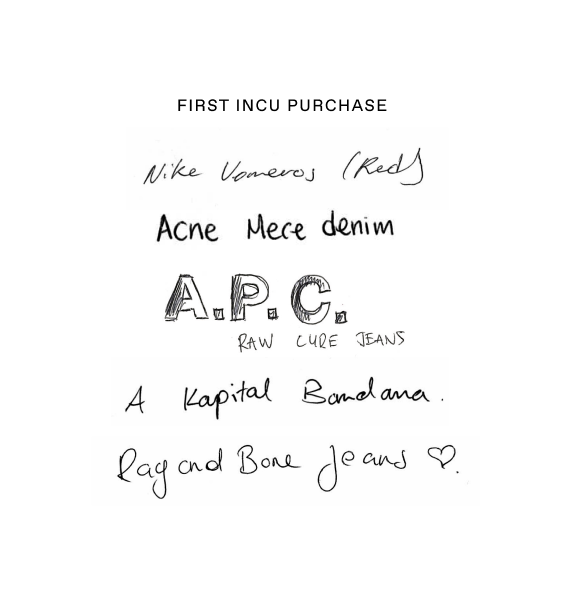 FIRST INCU PURCHASE
Nike Vomeros (Red)
Acne Mece denim
A.P.C.
RAW CURE JEANS
A Kapital Bandana.
Rag and Bone Jeans ♡.